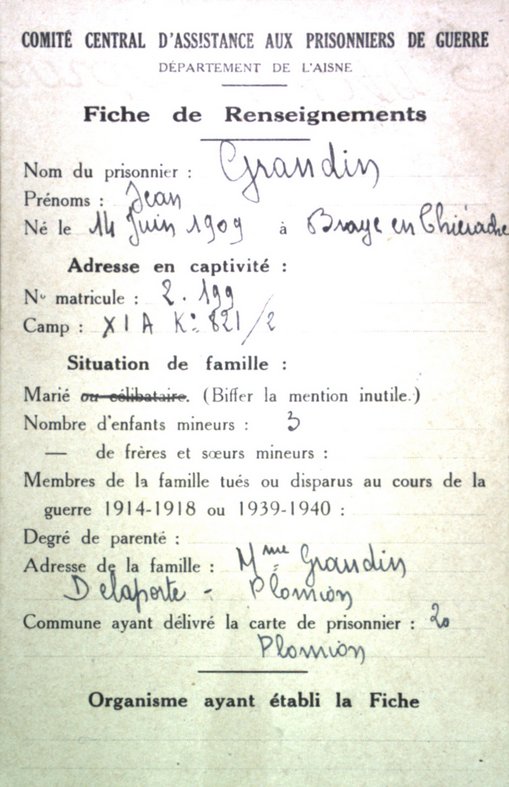 COMITÉ CENTRAL D'ASSISTANCE AUX PRISONNIERS DE GUERRE
DÉPARTEMENT DE L'AISNE
Fiche de Renseignements
Nom du prisonnier : Grandin
Prénoms : Jean
Né le 14 Juin 1909 à Braye en Thiérache
Adresse en captivité :
No matricule : 2.199
Camp : XIA Ko 821/2
Situation de famille :
Marié ou célibataire. (Biffer la mention inutile.)
Nombre d'enfants mineurs : 3
— de frères et sœurs mineurs :
Membres de la famille tués ou disparus au cours de la
guerre 1914-1918 ou 1939-1940 :
Degré de parenté :
Adresse de la famille : Mme Grandin
Delaporte - Plomion
Commune ayant délivré la carte de prisonnier :
Plomion
Organisme ayant établi la Fiche